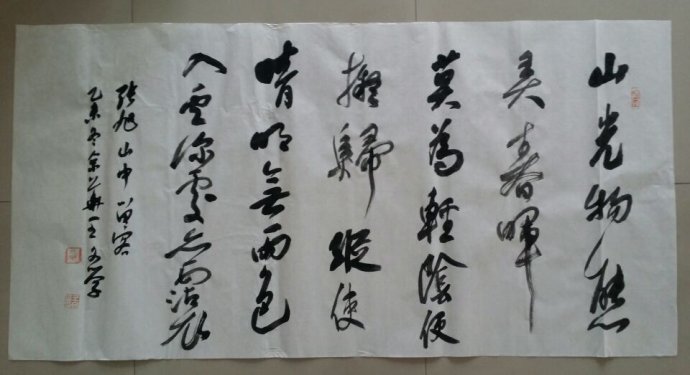 山光物態
弄春暉
莫為輕陰便
擬歸縱使
晴明無雨色
入雲深處亦沾衣
張旭山中留客
乙未冬 王文學